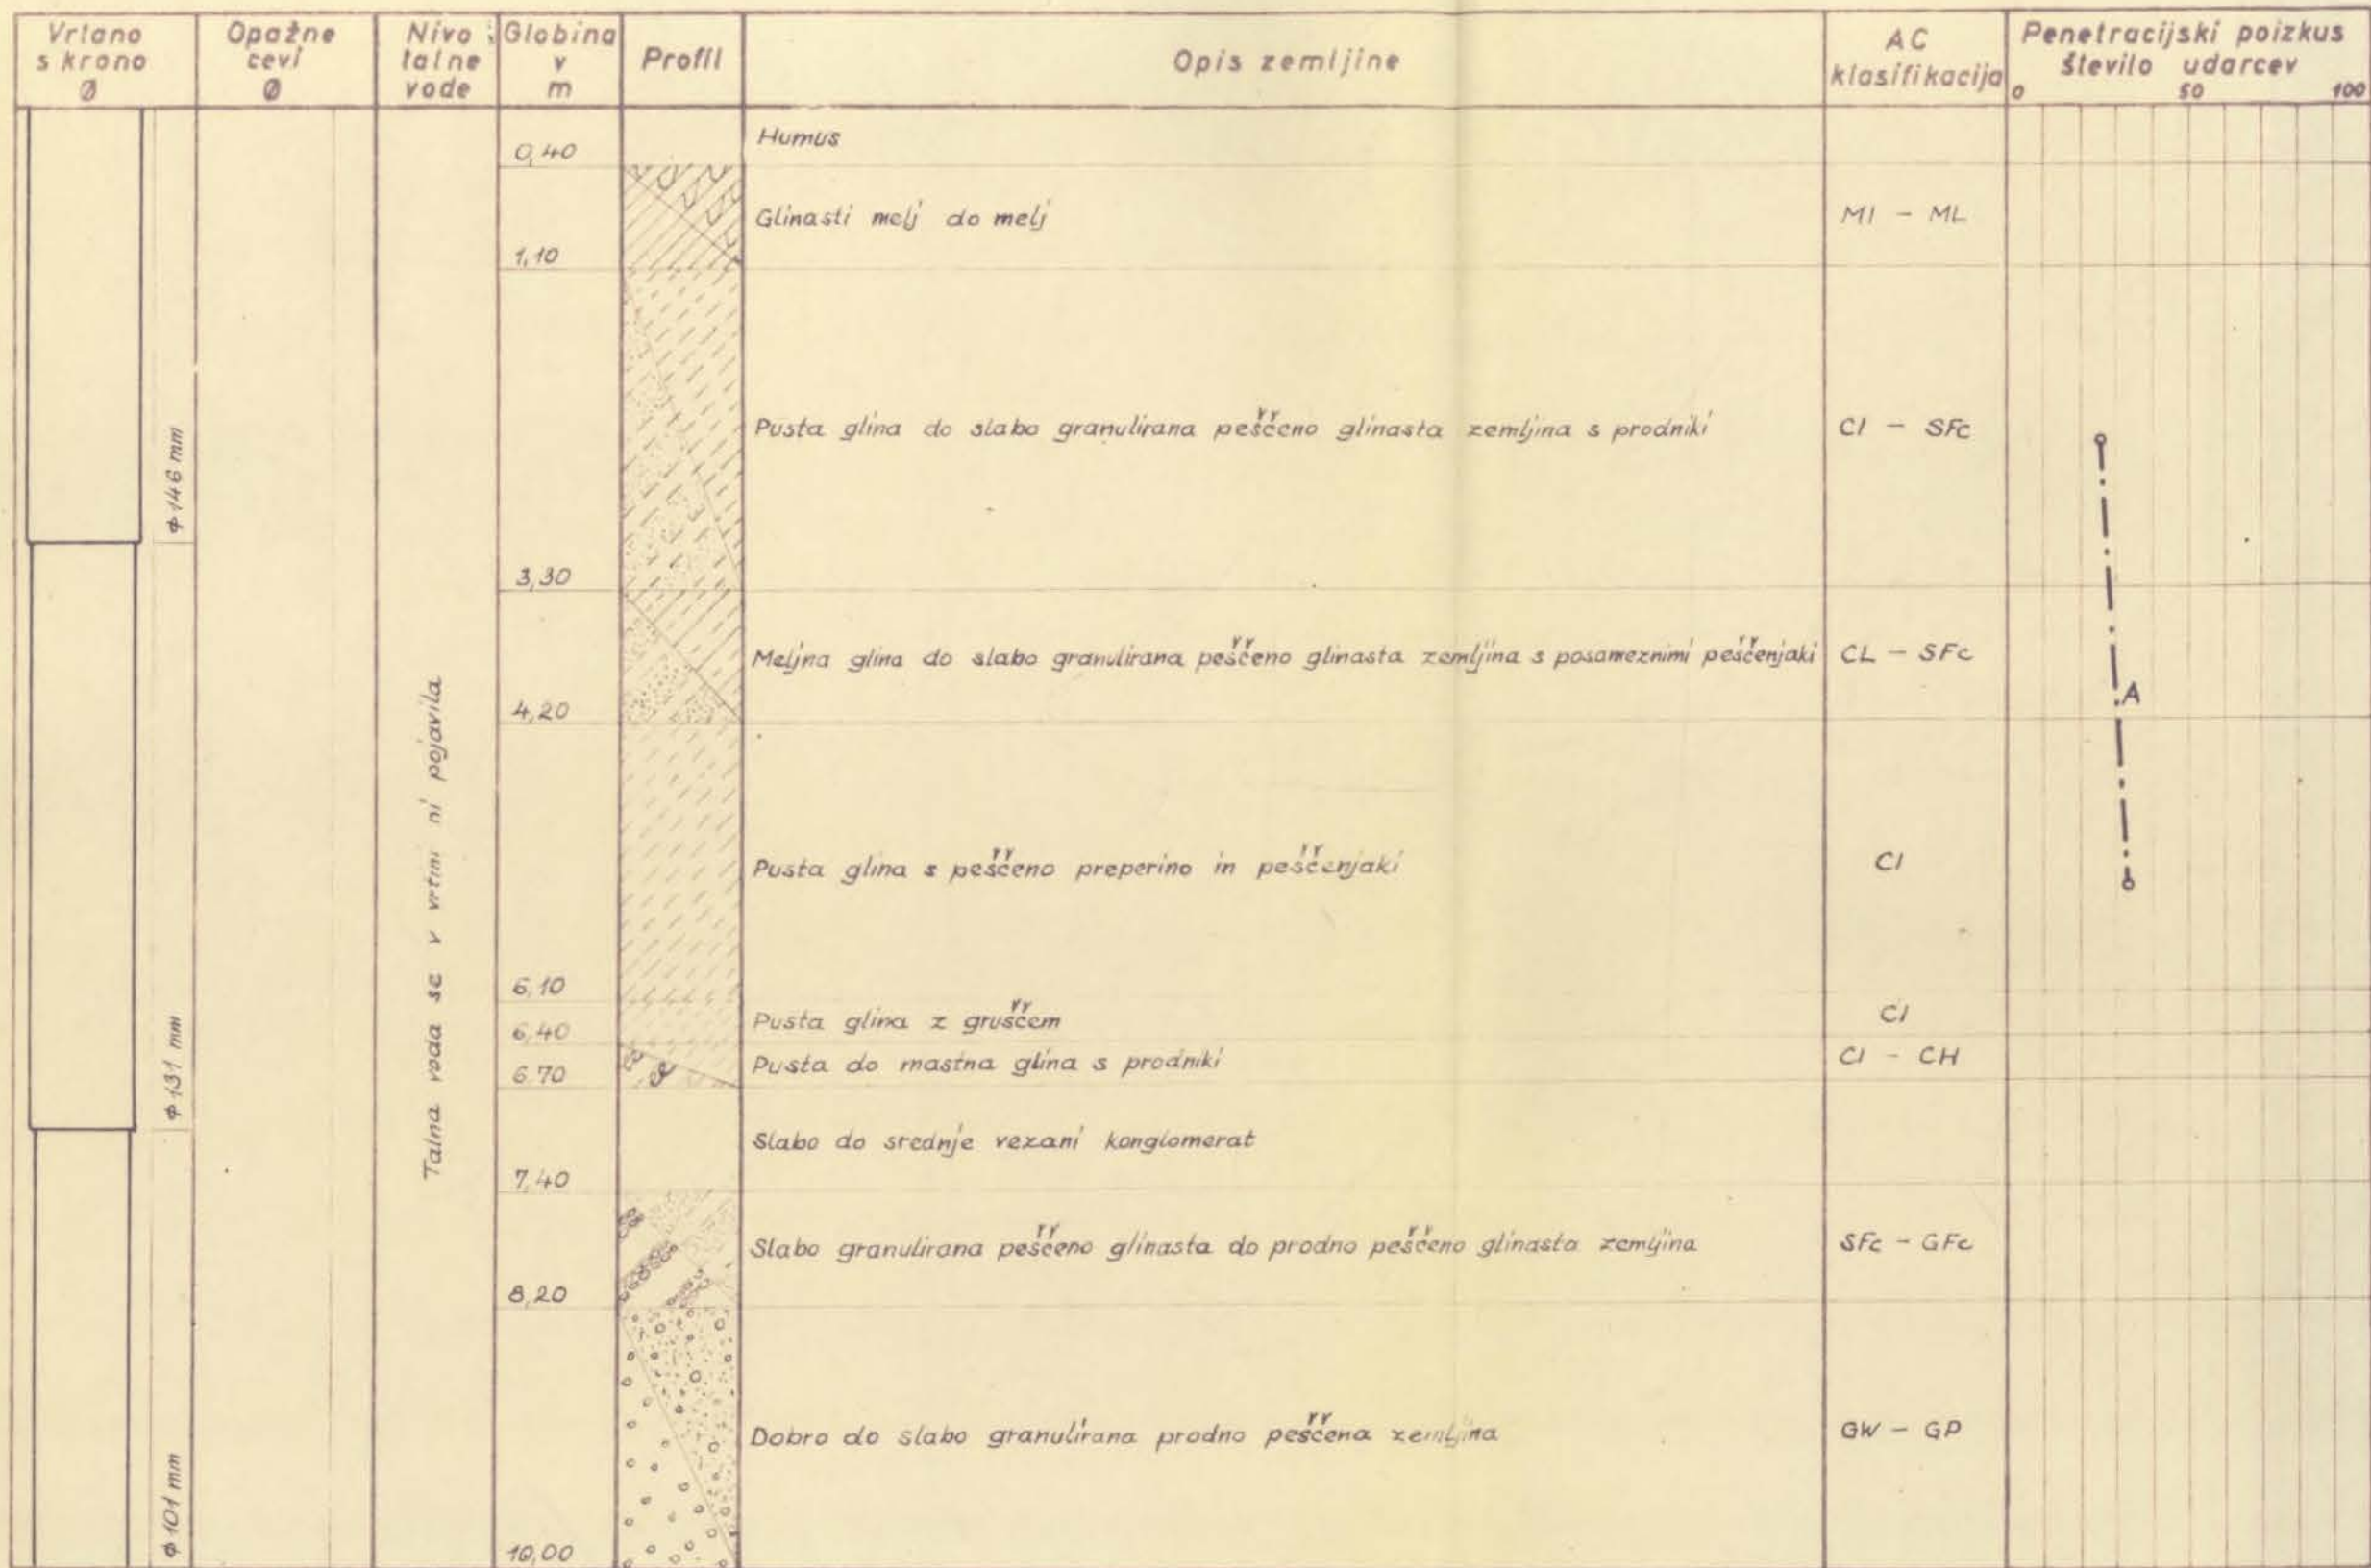 Vrtano s krono Ø
Opažne cevi Ø
Nivo talne vode
Globina v m
Profil
Opis zemljine
AC klasifikacija
Penetracijski poizkus število udarcev
0 50 100
Humus
0,40
Glinasti melj do melj MI - ML
1,10
Pusta glina do slabo granulirana peščeno glinasta zemljina s prodniki CI - SFc
φ 146 mm
3,30
Meljna glina do slabo granulirana peščeno glinasta zemljina s posameznimi peščenjaki CL - SFc
A
4,20
Talna voda se v vrtini ni pojavila
Pusta glina s peščeno preperino in peščenjaki CI
6,10
Pusta glina z gruščem CI
6,40
Pusta do mastna glina s prodniki CI - CH
6.70
φ 131 mm
Slabo do srednje vezani konglomerat
7,40
Slabo granulirana peščeno glinasta do prodno peščeno glinasta zemljina SFc - GFc
8,20
Dobro do slabo granulirana prodno peščena zemljina GW - GP
φ 101 mm
10,00